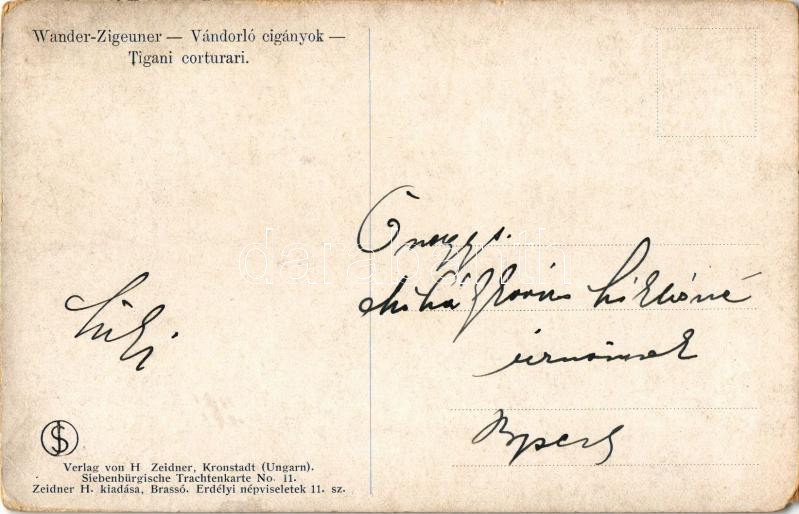 Wander-Zigeuner — Vándorló cigányok —
Țigani corturari.
Őnagys.
Miklósné
úrnőnek
Bpest
Verlag von H Zeidner, Kronstadt (Ungarn).
Siebenbürgische Trachtenkarte No 11.
Zeidner H. kiadása, Brassó. Erdélyi népviseletek 11. sz.